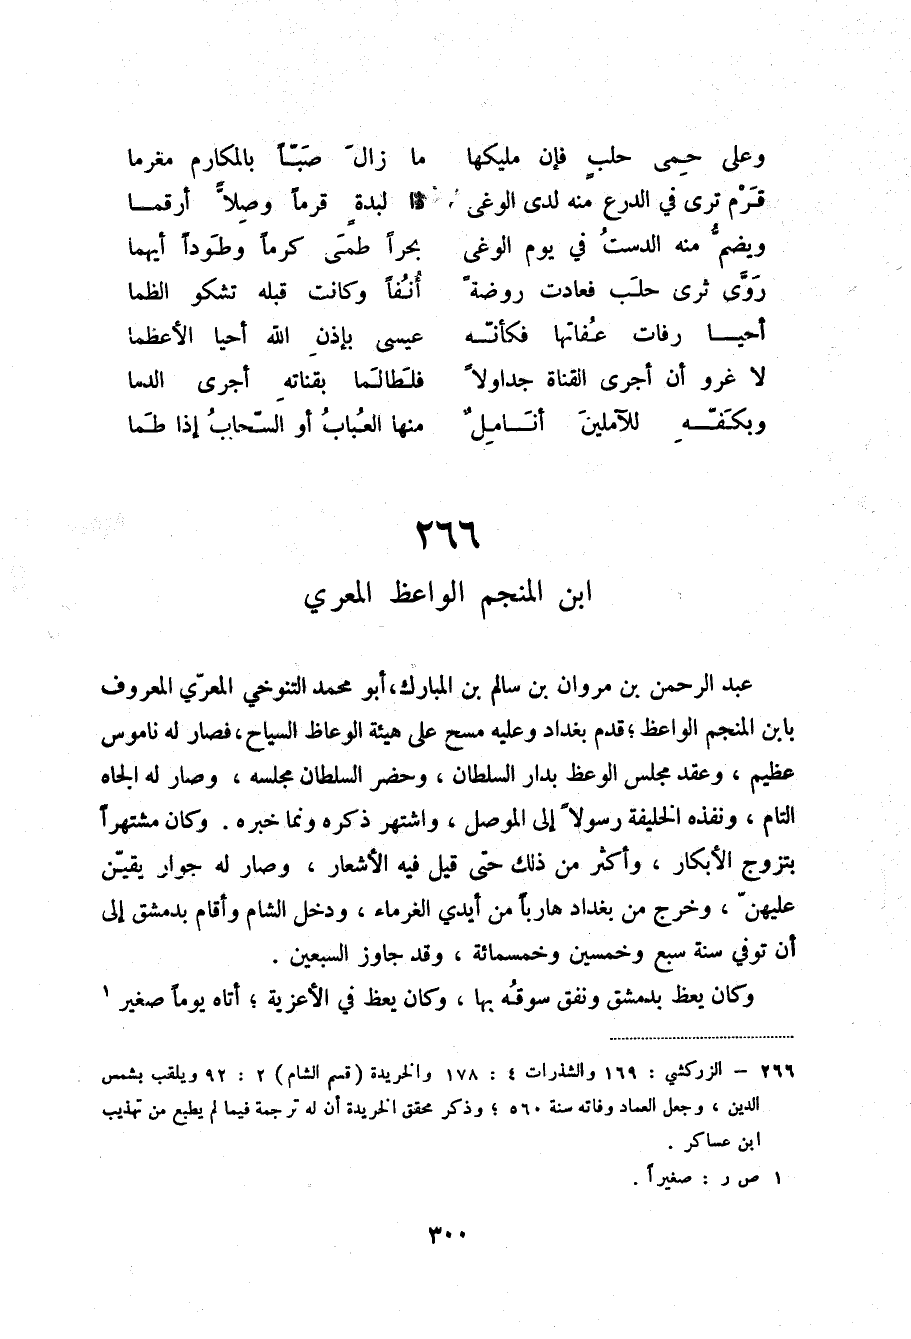 وعلى حِمى حلبٍ فإن مليكها ما زالَ صَبّاً بالمكارم مغرما
قَرْم ترى في الدرع منه لدى الوغى لبدةٍ قرماً وصِلاًّ أرقما
ويضمُّ منه الدستُ في يوم الوغى بحراً طمَى كرماً وطَوداً أيهما
رَوَّى ثرى حلَب فعادت روضةً أُنُفاً وكانت قبله تشكو الظما
أحيا رفات عُفاتها فكأنّه عيسى بإذنِ الله أحيا الأعظما
لا غرو أن أجرى القناة جداولاً فلَطالَما بقناتهِ أجرى الدما
وبكَفّهِ للآملينَ أنَامِلٌ منها العُبابُ أو السّحابُ إذا طمَا
٢٦٦
ابن المنجم الواعظ المعري
عبد الرحمن بن مروان بن سالم بن المبارك، أبو محمد التنوخي المعرّي المعروف
بابن المنجم الواعظ ؛ قدم بغداد وعليه مسح على هيئة الوعاظ السياح، فصار له ناموس
عظيم ، وعقد مجلس الوعظ بدار السلطان ، وحضر السلطان مجلسه ، وصار له الجاه
التام ، ونفذه الخليفة رسولاً إلى الموصل ، واشتهر ذكره ونما خبره . وكان مشتهراً
بتزوج الأبكار ، وأكثر من ذلك حتّى قيل فيه الأشعار ، وصار له جوار يقيّن
عليهنّ ، وخرج من بغداد هارباً من أيدي الغرماء ، ودخل الشام وأقام بدمشق إلى
أن توفي سنة سبع وخمسين وخمسمائة ، وقد جاوز السبعين .
وكان يعظ بدمشق ونفق سوقُه بها ، وكان يعظ في الأعزية ؛ أتاه يوماً صغير ١
٢٦٦ – الزركشي : ١٦٩ والشذرات ٤ : ١٧٨ والخريدة (قسم الشام) ٢ : ٩٢ ويلقب بشمس
الدين ، وجعل العماد وفاته سنة ٥٦٠ ؛ وذكر محقق الخريدة أن له ترجمة فيما لم يطبع من تهذيب
ابن عساكر .
١ ص ر : صغيراً .
٣٠٠